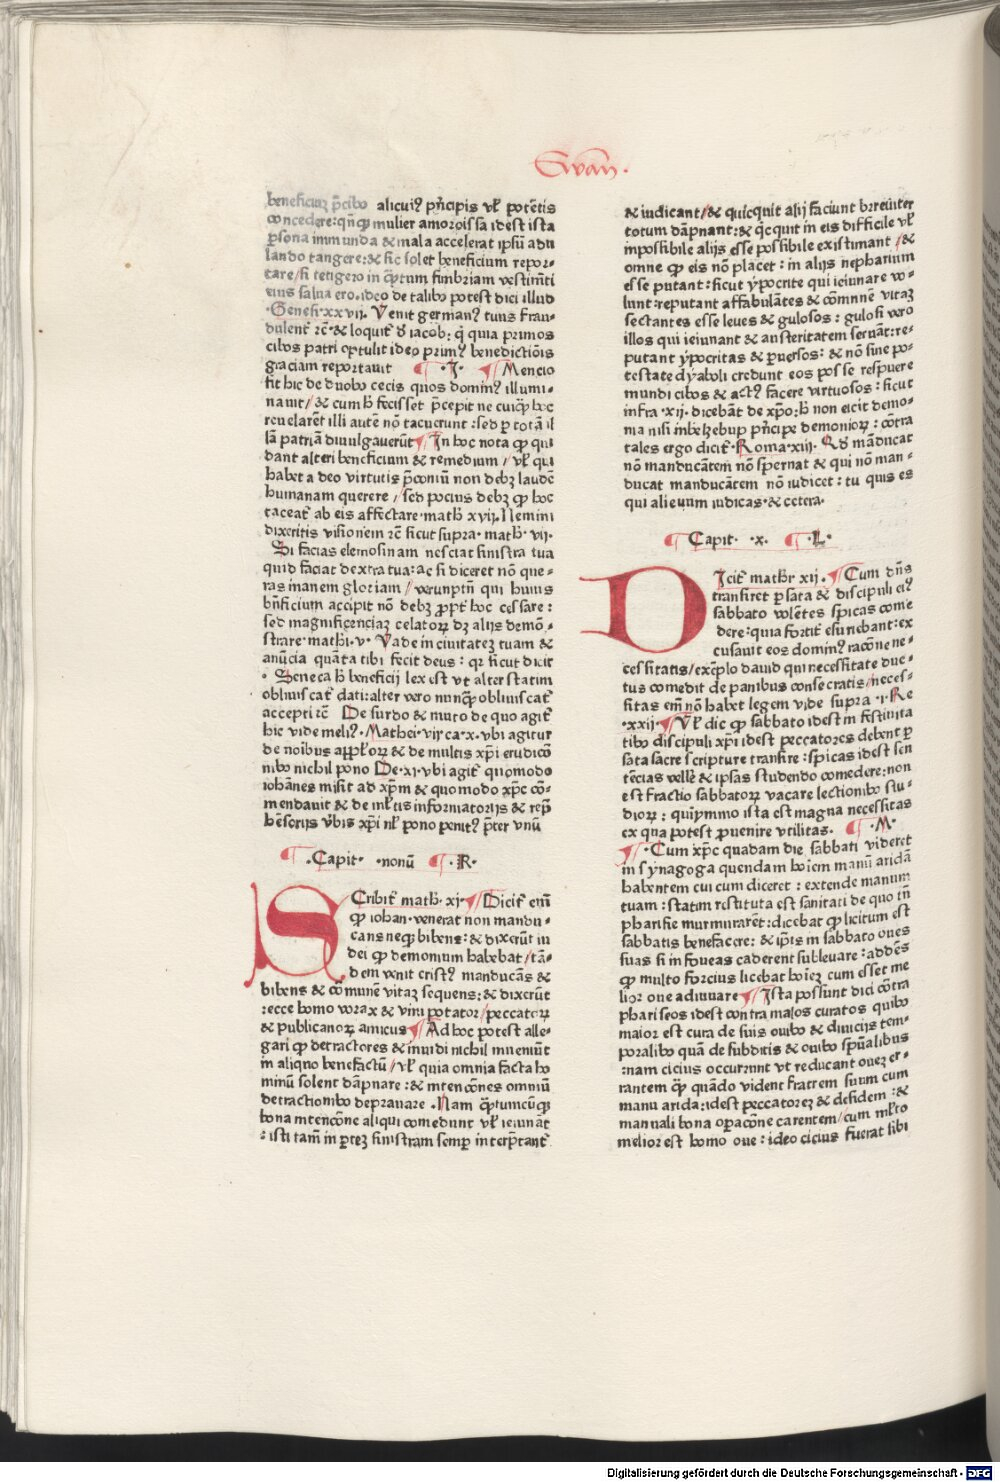 Ewan.
beneficiuꝫ p̄cibo alicui⁹ pn̄cipis vl̓ potētis
concedere: qn̄qꝫ mulier amoroissa idest ista
ꝑsona immunda & mala accelerat ipsū adu
lando tangere: & sic solet beneficium repor⸗
tare / si tetigero in qꝫtum fimbriam vestimēti
eius salua ero. ideo de talibo potest dici illud
·Genesi·xxvij. Venit german⁹ tuus frau⸗
dulent̓ rc̄·& loquit̓ d̓ iacob: qꝫ quia primos
cibos patri optulit ideo prim⁹ benedictiōis
graciam reportauit ¶ ·J· ¶ Mencio
fit hic de duobo cecis quos domin⁹ illumi⸗
nauit / & cum b̓ fecisset p̄cepit ne cuiqꝫ hoc
reuelarēt illi autē nō tacuerunt: sed ꝑ totā il
lā patriā diuulgauerūt ¶ In hoc nota qꝫ qui
dant alteri beneficium & remedium / vl̓ qui
habet a deo virtutis p̄coniū non debꝫ laudē
humanam querere / sed pocius debꝫ qꝫ hoc
taceat̓ ab eis affectare·math̓ xvij. Nemini
dixeritis visionem rc̄ sicut supra· math̓· vij·
Si facias elemosinam nesciat sinistra tua
quid faciat dextra tua: ac si diceret nō que⸗
ras inanem gloriam / verunptn̄ qui huius
bn̄ficium accipit nō debꝫ ꝓpt̓ hoc cessare:
sed magnificenciaꝫ celatoꝝ dꝫ alijs demō⸗
strare· mathi· v· Vade in ciuitateꝫ tuam &
anūcia quāta tibi fecit deus: qꝛ sicut dicit
· Seneca b̓ beneficij lex est vt alter statim
obliuiscat̓ dati: alter vero nunqꝫ obliuiscat̓
accepti rc̄ De surdo & muto de quo agit̓
hic vide meli⁹· Mathei· vij ca·x· vbi agitur
de noibus app̄l̓oꝝ & de multis xp̄i erudicō
nibo nichil pono De·xi·vbi agit̓ quomodo
iohānes misit ad xp̄m & quomodo xp̄c cō⸗
mendauit & de ml̓tis informatorijs & rep̄
hēsorijs v̓bis xp̄i nl̓ pono penit⁹ p̄ter vnū
¶ ·Capit· ·nonū ¶·R·
SCribit̓ math̓· xi· ¶ Dicit̓ em̄
qꝫ iohan·venerat non mandu⸗
cans neqꝫ bibens: & dixerūt iu
dei qꝫ demonium habebat / tā⸗
dem venit crist⁹ manducās &
bibens & cōmunē vitaꝫ sequens: & dixerūt
: ecce homo vorax & vini potator / peccatoꝝ
& publicanoꝝ amicus ¶ Ad hoc potest alle⸗
gari qꝫ detractores & inuidi nichil inueniūt
in aliquo benefactū / vl̓ quia omnia facta ho
minū solent dāpnare: & intencōnes omniū
detractionibo deprauare · Nam qꝫtumcūqꝫ
bona intencōne aliqui comedunt vl̓ ieiunāt
: isti tam̄ in ꝑteꝫ sinistram semꝑ interp̄tant̓
& iudicant / & quicquit alij faciunt breuiter
totum dāpnant: & qꝫcquit in eis difficile vl̓
impossibile alijs esse possibile existimant / &
omne qꝫ eis nō placet: in alijs nepharium
esse putant: sicut ypocrite qui ieiunare vo⸗
lunt: reputant affabulātes & cōmnnē vitaꝫ
sectantes esse leues & gulosos: gulosi vero
illos qui ieiunant & austeritatem seruāt: re⸗
putant ypocritas & ꝑuersos: & nō sine po⸗
testate dyaboli credunt eos posse respuere
mundi cibos & act⁹ facere virtuosos: sicut
infra·xij. dicebāt de xp̄o: b̓ non eicit demo⸗
nia nisi in belzebup pn̄cipe demonioꝝ: cōtra
tales ergo dicit̓· Roma·xiij. Qd̓ māducat
nō manducātem nō sꝑernat & qui nō man⸗
ducat manducātem nō iudicet: tu quis es
qui alieuum iudicas·& cetera·
¶ Capit· ·x· ¶·L·
DJcit̓ math̓r xij. ¶ Cum dn̄s
transiret ꝑ sata & discipuli ei⁹
sabbato volētes spicas come
dere: quia fortit̓ esuriebant: ex
cusauit eos domin⁹ racōne ne⸗
cessitatis / exēplo dauid qui necessitate duc⸗
tus comedit de panibus consecratis / neces⸗
sitas em̄ nō habet legem vide supra ·i·Re
·xxij· ¶ Vl̓ dic qꝫ sabbato idest in festiuita
tibo discipuli xp̄i idest peccatores debent ꝑ
sata sacre scripture transire: spicas idest sen
tēcias velle̓ & ipsas studendo comedere: non
est fractio sabbatoꝝ vacare lectionibo stu⸗
dioꝝ: quiymmo ista est magna necessitas
ex qua potest ꝓuenire vtilitas. ¶·M·
¶·Cum xp̄c quadam die sabbati videret
in synagoga quendam hoīem manū aridā
habentem cui cum diceret: extende manum
tuam: statim restituta est sanitati de quo tn̄
pharisie murmurarēt: dicebat qꝫ licitum est
sabbatis benefacere: & ip̄is in sabbato oues
suas si in foueas caderent subleuare: addēs
qꝫ multo forcius licebat hoīeꝫ cum esset me
lior oue adiuuare ¶ Ista possunt dici cōtra
phariseos idest contra malos curatos quibo
maior est cura de suis ouibo & diuicijs tem⸗
poralibo quā de subditis & ouibo sp̄ualibus
: nam cicius occurrunt vt reducant oueꝫ er⸗
rantem qꝫ quādo vident fratrem suum cum
manu arida: idest peccatoreꝫ & desidem: &
manuali bona oꝑacōne carentem / cum ml̓to
melior est homo oue: ideo cicius fuerat sibi
Digitalisierung gefördert durch die Deutsche Forschungsgemeinschaft - DFG